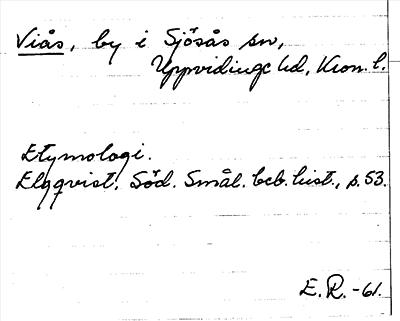 Viås, by i Sjösås sn,
Uppvidinge hd, Kron. l.
Etymologi.
Elgqvist, Söd. Smål. beb. hist., s. 53.
E.R. -61.